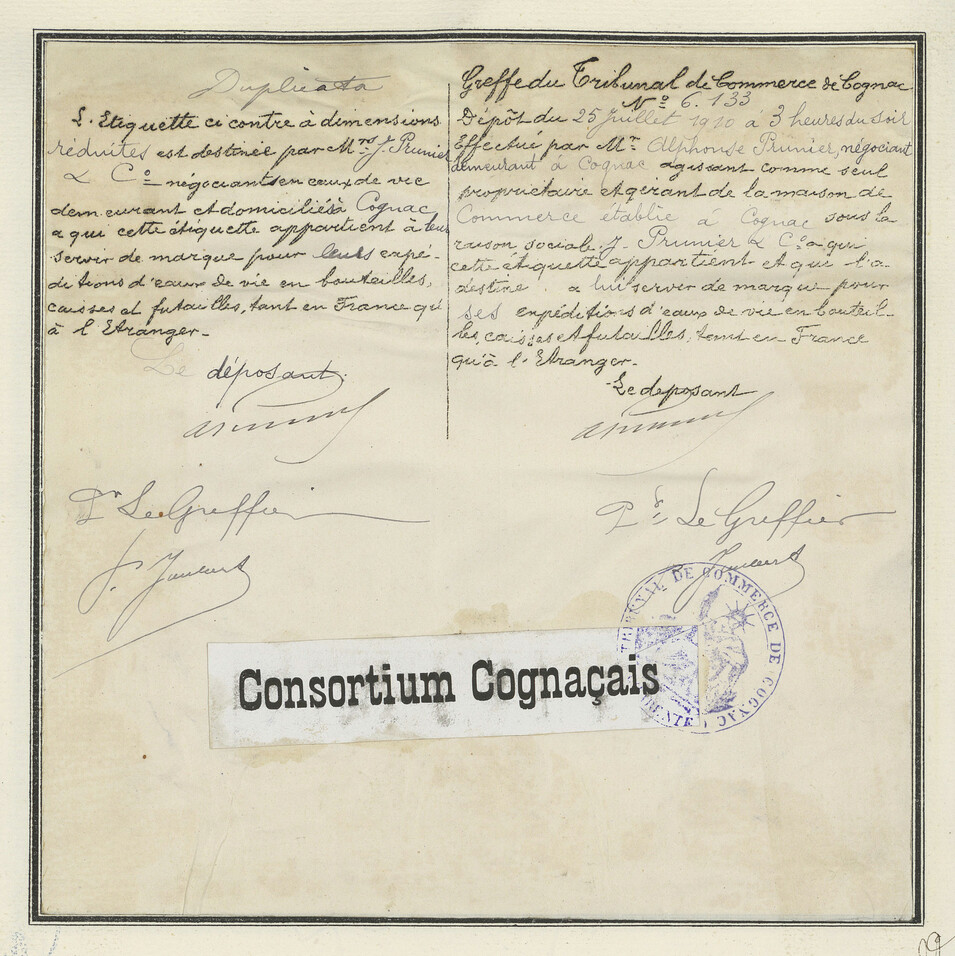 Duplicata
L'Etiquette ci contre à dimensions
réduites est destinée par Mrs J. Prunier
& Co négociants en eaux de vie
demeurant et domiciliés à Cognac,
a qui cette étiquette appartient à leur
servir de marque pour leurs expé-
ditions d'eaux de vie en bouteilles,
caisses et futailles, tant en France qu'
à l'Etranger.
Le déposant.
Pr Le Greffier
Greffe du Tribunal de Commerce de Cognac
No 6.133
Dépôt du 25 Juillet 1910 à 3 heures du soir
Effectué par Mr Alphonse Prunier, négociant
demeurant à Cognac agissant comme seul
propriétaire et gérant de la maison de
Commerce établie à Cognac sous la
raison sociale J. Prunier & Co a qui
cette étiquette appartient et qui l'a
destine a lui server de marque pour
ses expéditions d'eaux de vie en bouteil-
les, caisses et futailles, tant en France
qu'à l'Etranger.
Le deposant
Pr Le Greffier
TRIBUNAL DE COMMERCE DE COGNAC
Consortium Cognaçais